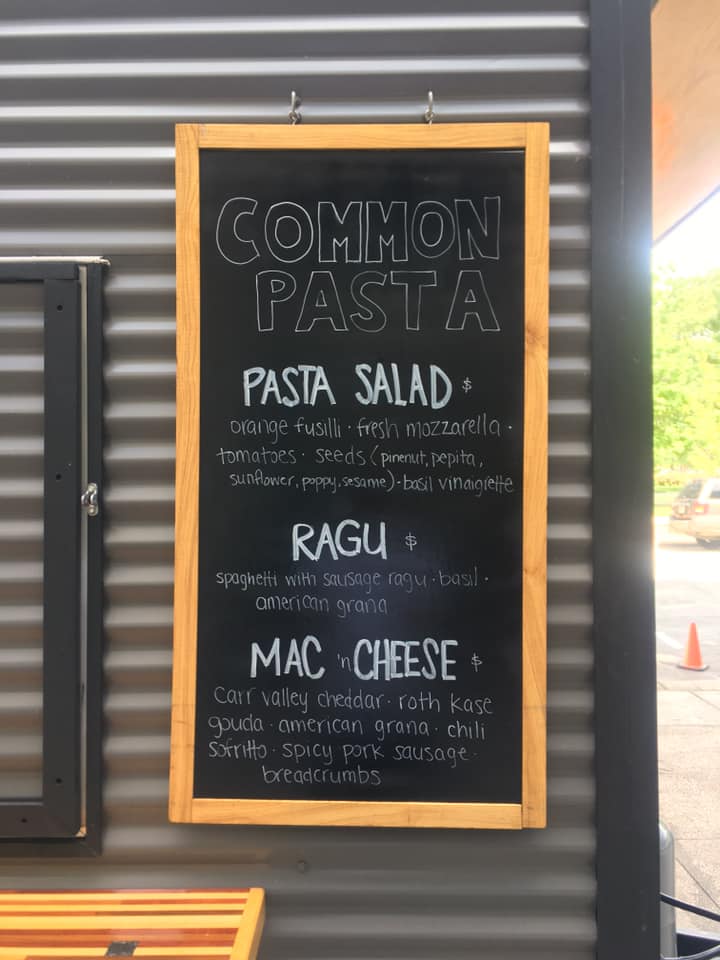 COMMON
PASTA
PASTA SALAD $
orange fusilli · fresh mozzarella ·
tomatoes · seeds (pinenut, pepita,
sunflower, poppy, sesame) · basil vinaigrette
RAGU $
spaghetti with sausage ragu · basil ·
american grana
MAC 'n CHEESE $
carr valley cheddar · roth kase
gouda · american grana · chili
sofritto · spicy pork sausage ·
breadcrumbs